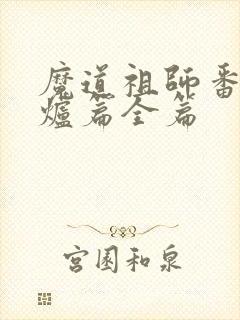 魔道祖師番
爐篇全篇
宮園和泉